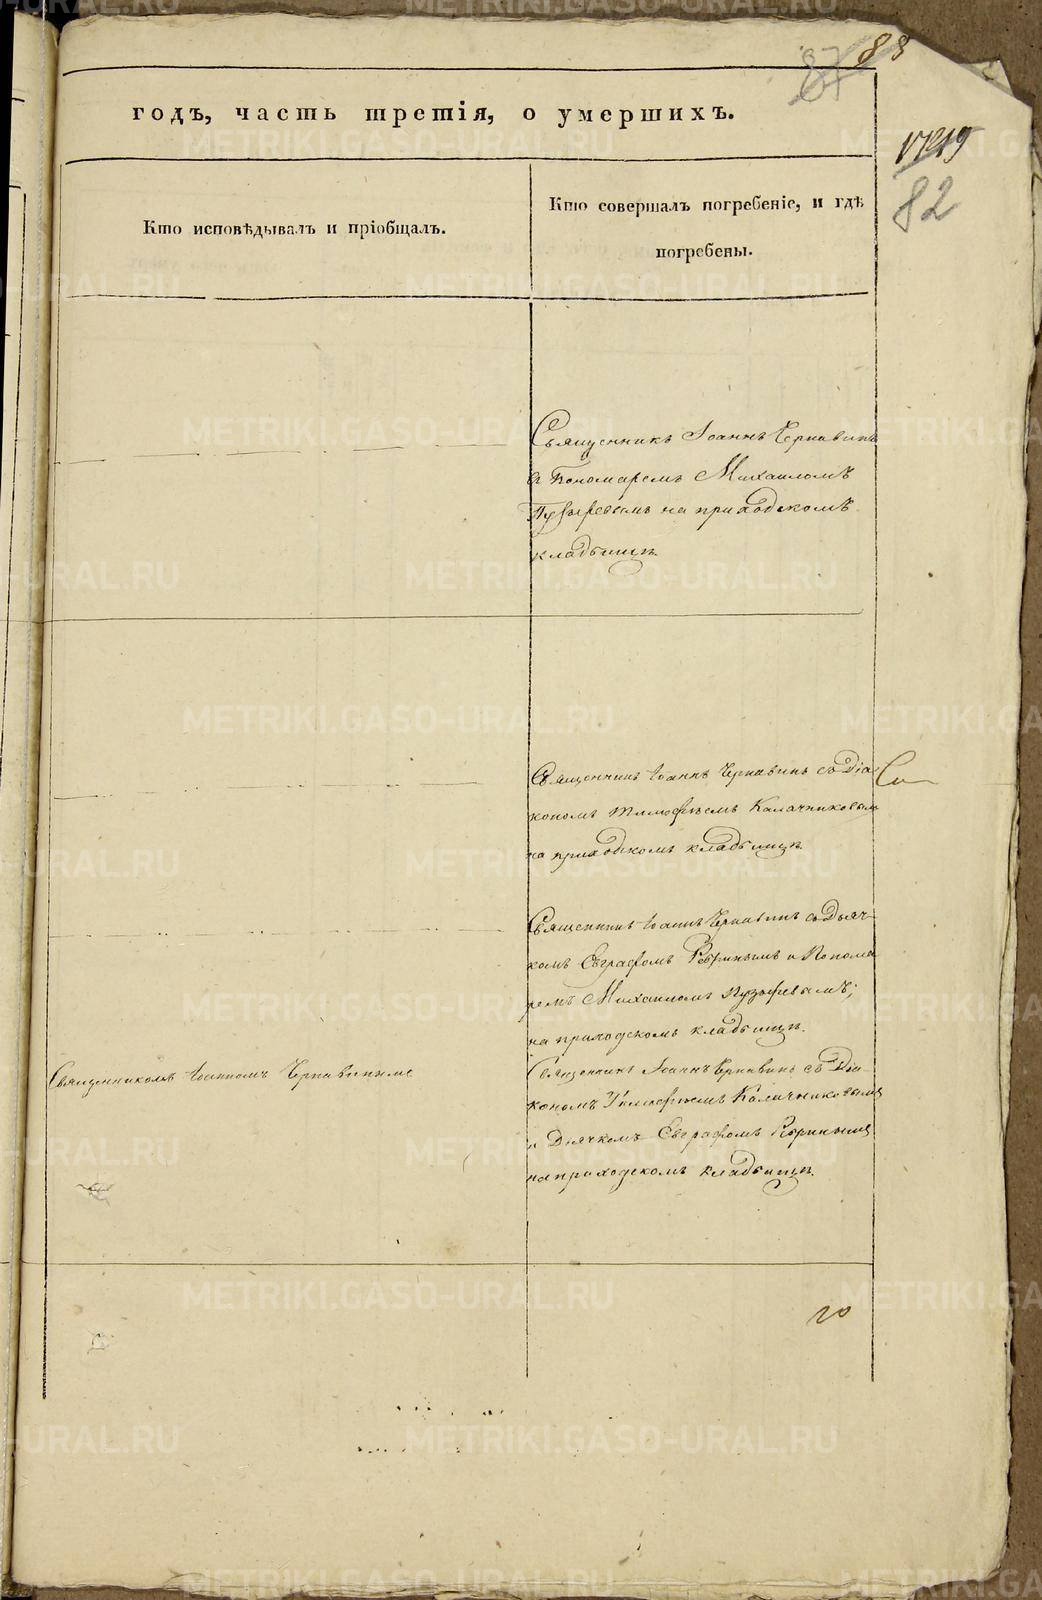 88
87
годъ, часть третія, о умершихъ.
82
Кто исповѣдывалъ и пріобщалъ.
Кто совершалъ погребеніе, и гдѣ
погребены.
Священникъ Іоаннъ Чернавинъ
с Пономаремъ Михаиломъ
Пузыревымъ на приходскомъ
кладбищѣ
Священникъ Іоаннъ Чернавинъ съ Діа
кономъ Тимофѣемъ Калачниковымъ
на приходскомъ кладбищѣ
Священникъ Іоаннъ Чернавинъ съ Дьяч
комъ Евграфомъ Ребринымъ и Понома
ремъ Михаиломъ Пузыревымъ;
на приходскомъ кладбищѣ.
Священникомъ Іоанномъ Чернавинымъ
Священникъ Іоаннъ Чернавинъ съ Діа
кономъ Тимофѣемъ Калачниковымъ
и Дьячкомъ Евграфомъ Ребринымъ
на приходскомъ кладбищѣ.
METRIKI.GASO-URAL.RU